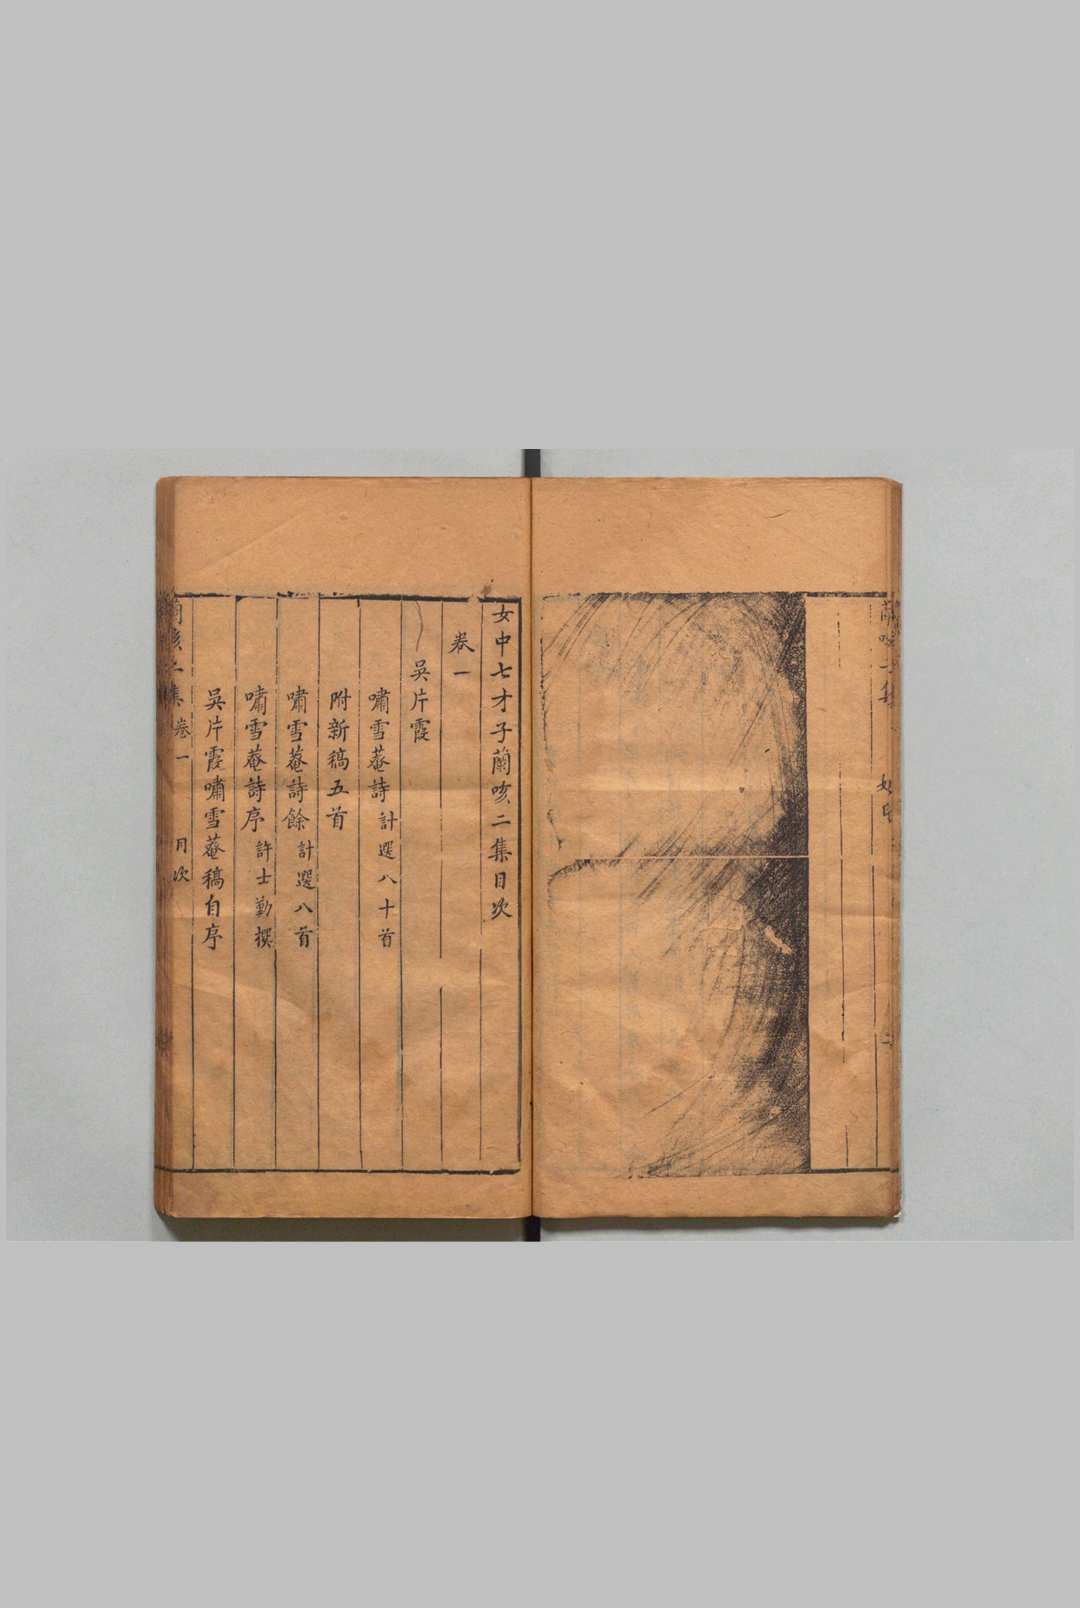 女中七才子蘭咳二集目次
卷一
吳片霞
嘯雪菴詩計選八十首
附新稿五首
嘯雪菴詩餘計選八首
嘯雪菴詩序許士勤撰
吳片霞嘯雪菴稿自序
蘭咳二集卷一 目次